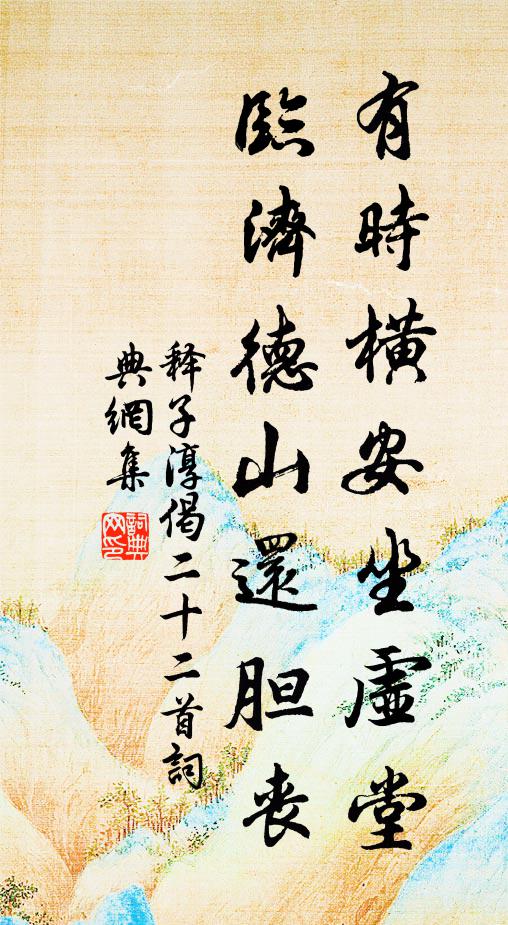 有時橫安坐虛堂
臨濟德山還胆丧
释子淳偈二十二首詞
典網集
詞典
网印